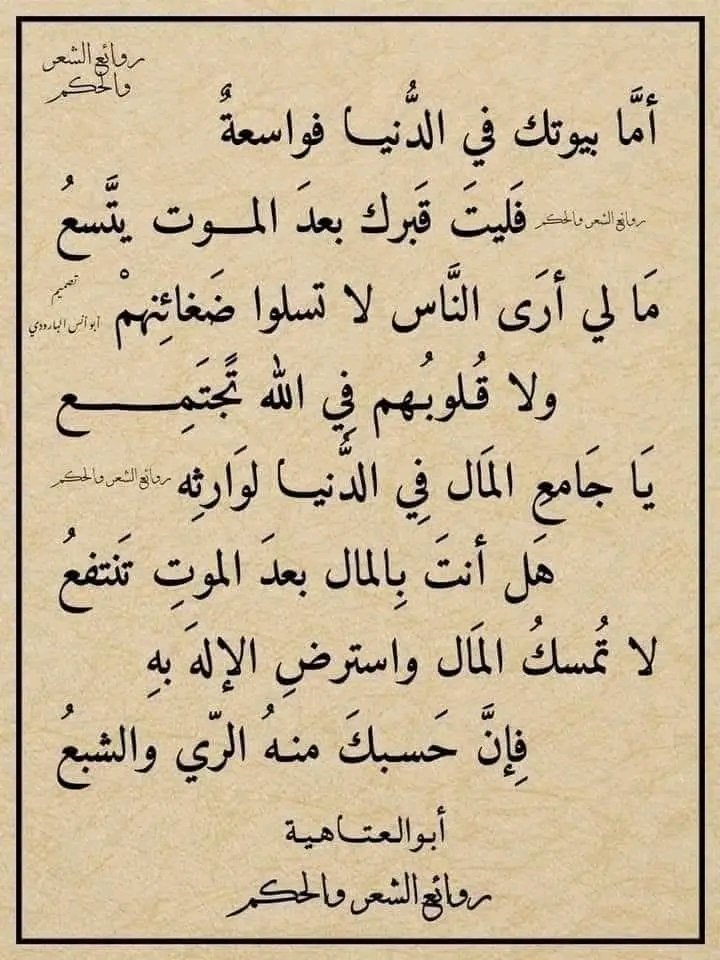 روائع الشعر
والحكم
أمَّا بيوتك في الدُّنيا فواسعةٌ
روائع الشعر والحكم
فَليتَ قَبرك بعدَ الموت يتَّسعُ
مَا لي أرَى النَّاس لا تسلوا ضَغائِنهمْ
تصميم
أبو أنس البارودي
ولا قُلوبُهم فِي الله تَّجتَمِع
يَا جَامعِ المَال فِي الدُّنيا لوَارثِه
روائع الشعر والحكم
هَل أنتَ بِالمال بعدَ الموتِ تَنتفعُ
لا تُمسكُ المَال واسترضِ الإلهَ بهِ
فِإنَّ حَسبكَ منهُ الرّي والشبعُ
أبو العتاهية
روائع الشعر والحكم